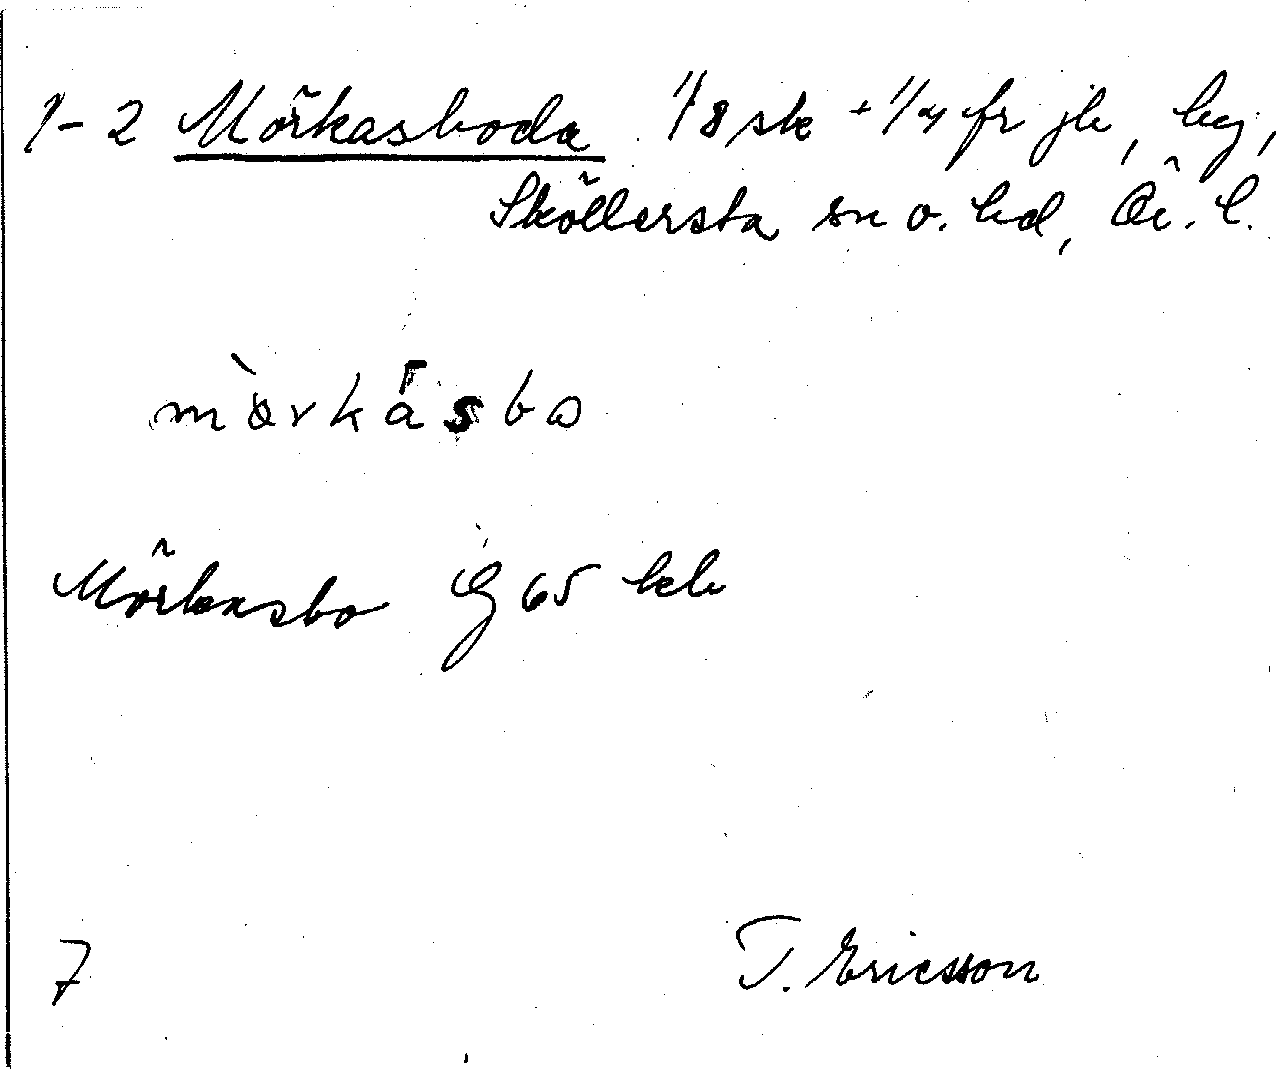 1-2 Mörkasboda 1/8 sk + 1/4 fr jb, by,
Sköllersta sn o. hd, Ör. l.
mòrkåsbo
Mörkasbo G 65 kb
7
T. Ericsson